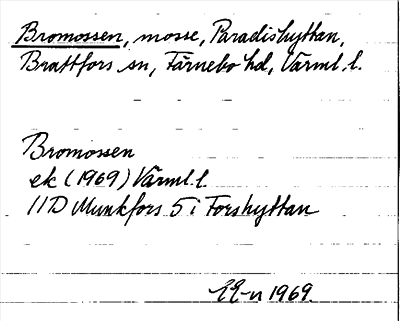 Bromossen, mosse, Paradishyttan,
Brattfors sn, Färnebo hd, Värml. l.
Bromossen
ek (1969) Värml. l.
11D Munkfors 5 i Forshyttan
1969.